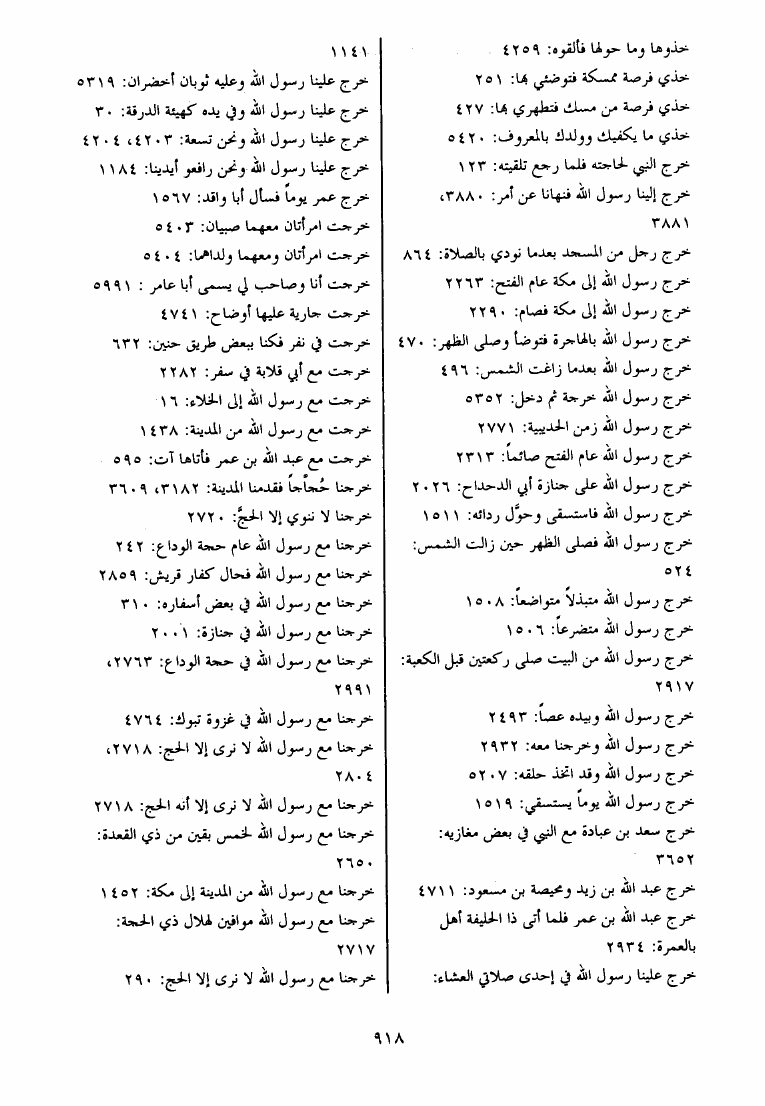 خذوها وما حولها فألقوه: ٤٢٥٩
خذي فرصة ممسكة فتوضئي بها: ٢٥١
خذي فرصة من مسك فتطهري بها: ٤٢٧
خذي ما يكفيك وولدك بالمعروف: ٥٤٢٠
خرج النبي لحاجته فلما رجع تلقيته: ١٢٣
خرج إلينا رسول الله فنهانا عن أمر: ٣٨٨٠،
٣٨٨١
خرج رجل من المسجد بعدما نودي بالصلاة: ٨٦٤
خرج رسول الله إلى مكة عام الفتح: ٢٢٦٣
خرج رسول الله إلى مكة فصام: ٢٢٩٠
خرج رسول الله بالهاجرة فتوضأ وصلى الظهر: ٤٧٠
خرج رسول الله بعدما زاغت الشمس: ٤٩٦
خرج رسول الله خرجة ثم دخل: ٥٣٥٢
خرج رسول الله زمن الحديبية: ٢٧٧١
خرج رسول الله عام الفتح صائماً: ٢٣١٣
خرج رسول الله على جنازة أبي الدحداح: ٢٠٢٦
خرج رسول الله فاستسقى وحوَّل ردائه: ١٥١١
خرج رسول الله فصلى الظهر حين زالت الشمس:
٥٢٤
خرج رسول الله متبذلاً متواضعاً: ١٥٠٨
خرج رسول الله متضرعاً: ١٥٠٦
خرج رسول الله من البيت صلى ركعتين قبل الكعبة:
٢٩١٧
خرج رسول الله وبيده عصاً: ٢٤٩٣
خرج رسول الله وخرجنا معه: ٢٩٣٢
خرج رسول الله وقد اتخذ حلقه: ٥٢٠٧
خرج رسول الله يوماً يستسقي: ١٥١٩
خرج سعد بن عبادة مع النبي في بعض مغازيه:
٣٦٥٢
خرج عبد الله بن زيد ومحيصة بن مسعود: ٤٧١١
خرج عبد الله بن عمر فلما أتى ذا الحليفة أهل
بالعمرة: ٢٩٣٤
خرج علينا رسول الله في إحدى صلاتي العشاء:
١١٤١
خرج علينا رسول الله وعليه ثوبان أخضران: ٥٣١٩
خرج علينا رسول الله وفي يده كهيئة الدرقة: ٣٠
خرج علينا رسول الله ونحن تسعة: ٤٢٠٣، ٤٢٠٤
خرج علينا رسول الله ونحن رافعو أيدينا: ١١٨٤
خرج عمر يوماً فسأل أبا واقد: ١٥٦٧
خرجت امرأتان معهما صبيان: ٥٤٠٣
خرجت امرأتان ومعهما ولداهما: ٥٤٠٤
خرجت أنا وصاحب لي يسمى أبا عامر : ٥٩٩١
خرجت جارية عليها أوضاح: ٤٧٤١
خرجت في نفر فكنا ببعض طريق حنين: ٦٣٢
خرجت مع أبي قلابة في سفر: ٢٢٨٢
خرجت مع رسول الله إلى الخلاء: ١٦
خرجت مع رسول الله من المدينة: ١٤٣٨
خرجت مع عبد الله بن عمر فأتاها آت: ٥٩٥
خرجنا حُجاجاً فقدمنا المدينة: ٣١٨٢، ٣٦٠٩
خرجنا لا ننوي إلا الحجَّ: ٢٧٢٠
خرجنا مع رسول الله عام حجة الوداع: ٢٤٢
خرجنا مع رسول الله فحال كفار قريش: ٢٨٥٩
خرجنا مع رسول الله في بعض أسفاره: ٣١٠
خرجنا مع رسول الله في جنازة: ٢٠٠١
خرجنا مع رسول الله في حجة الوداع: ٢٧٦٣،
٢٩٩١
خرجنا مع رسول الله في غزوة تبوك: ٤٧٦٤
خرجنا مع رسول الله لا نرى إلا الحج: ٢٧١٨،
٢٨٠٤
خرجنا مع رسول الله لا نرى إلا أنه الحج: ٢٧١٨
خرجنا مع رسول الله لخمس بقين من ذي القعدة:
٢٦٥٠
خرجنا مع رسول الله من المدينة إلى مكة: ١٤٥٢
خرجنا مع رسول الله موافين لهلال ذي الحجة:
٢٧١٧
خرجنا مع رسول الله لا نرى إلا الحج: ٢٩٠
٩١٨